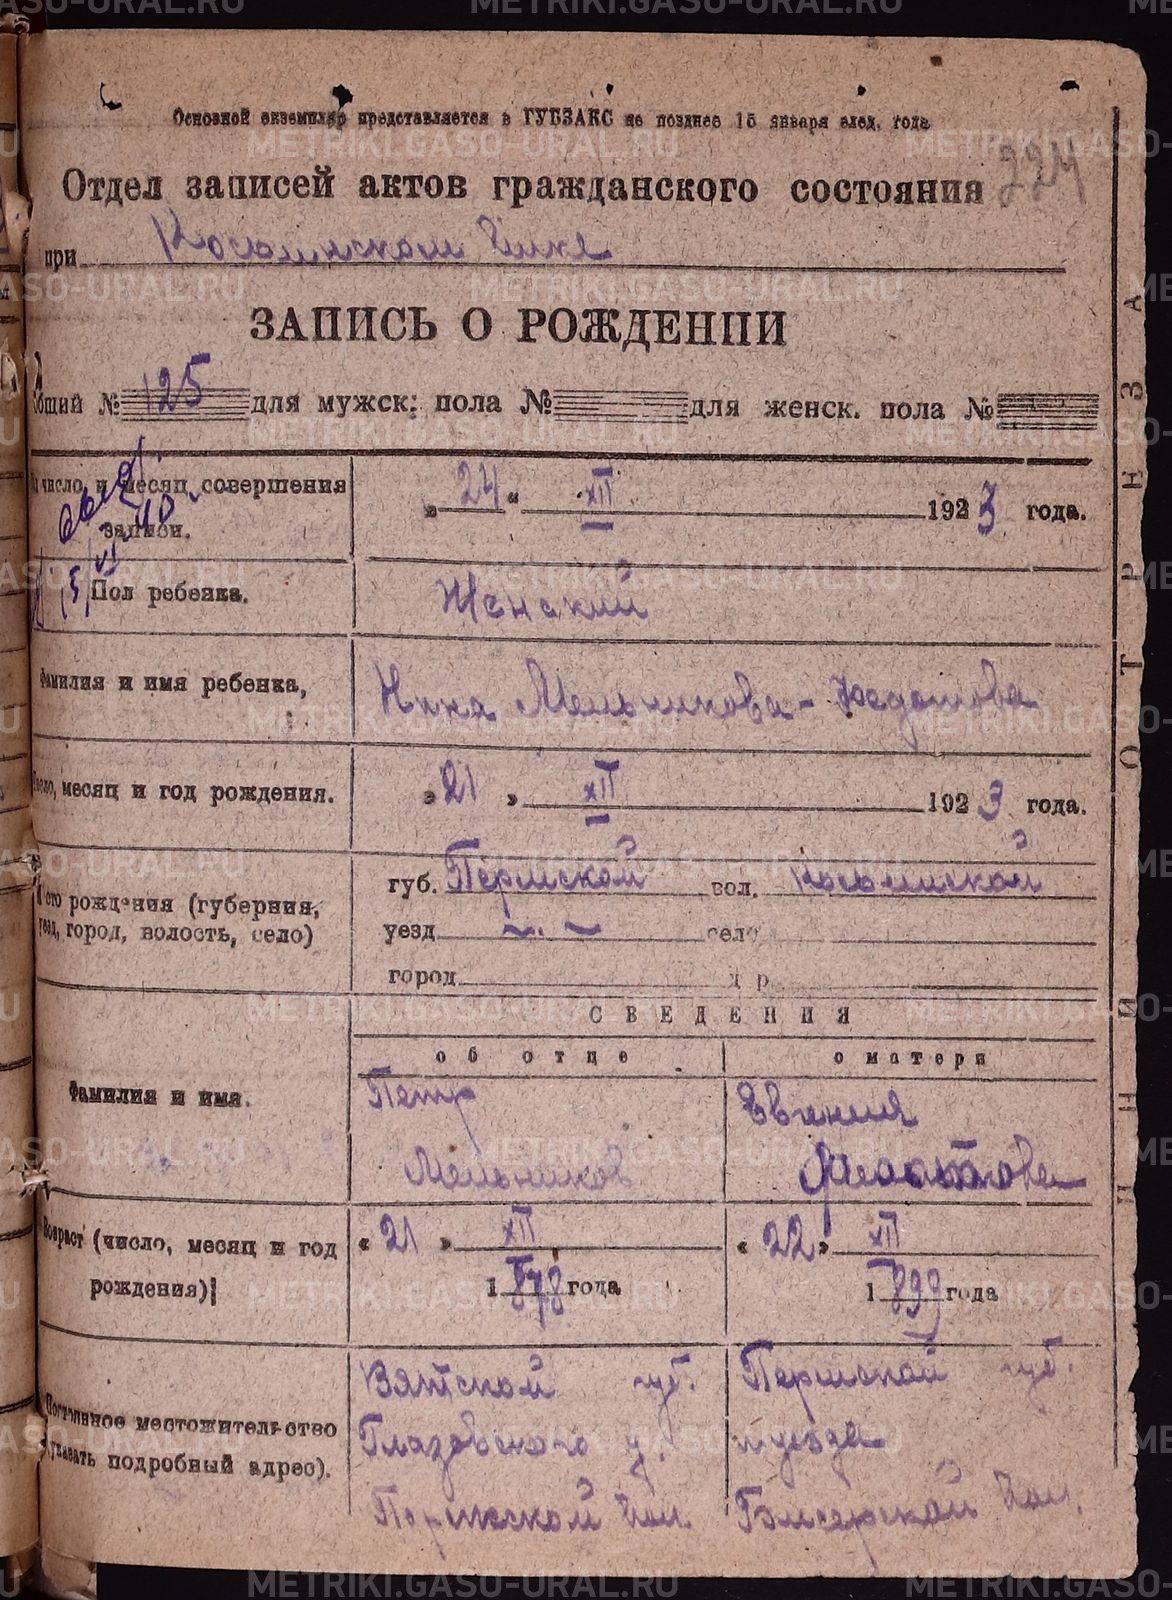 Основной экземпляр представляется в ГУБЗАКС не позднее 15 января след. года
224
Отдел записей актов гражданского состояния
при
ЗАПИСЬ О РОЖДЕНИИ
Общий № 125 для мужск. пола № для женск. пола №
число и месяц совершения записи.
„ 24 “ XII 1923 года.
Пол ребенка.
Женский
Фамилия и имя ребенка,
Нина Мельникова-
Число, месяц и год рождения.
„ 21 „ XII 1923 года.
Место рождения (губерния, уезд, город, волость, село)
губ. Пермской вол.
уезд село
город
СВЕДЕНИЯ
об отце
о матери
Фамилия и имя.
Петр
Мельников
Евгения
Возраст (число, месяц и год рождения)
« 21 » XII 1878 года
« 22 » XII 1899 года
Постоянное местожительство (указать подробный адрес).
Вятской губ.
Глазовского у.
Пермской губ.
и уезда
НЕ ОТРЕЗАНЫ
METRIKI.GASO-URAL.RU